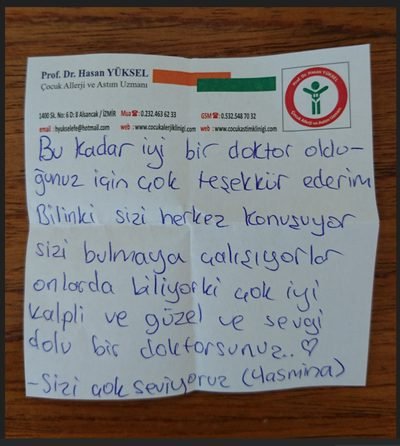 Prof. Dr. Hasan YÜKSEL
Çocuk Allerji ve Astım Uzmanı
Prof. Dr. Hasan YÜKSEL
Çocuk Allerji ve Astım Uzmanı
1400 Sk. No: 6 D: 8 Alsancak / İZMİR Mua ☎ : 0.232.463 62 33 GSM ☎ : 0.532.548 70 32
email : hyukselefe@hotmail.com web : www.cocukalerjiklinigi.com web : www.cocukastimklinigi.com
Bu kadar iyi bir doktor oldu-
ğunuz için çok teşekkür ederim
Bilinki sizi herkez konuşuyor
sizi bulmaya çalışıyorlar
onlarda biliyorki çok iyi
kalpli ve güzel ve sevgi
dolu bir doktorsunuz.. ♡
-Sizi çok seviyoruz (Yasmina)